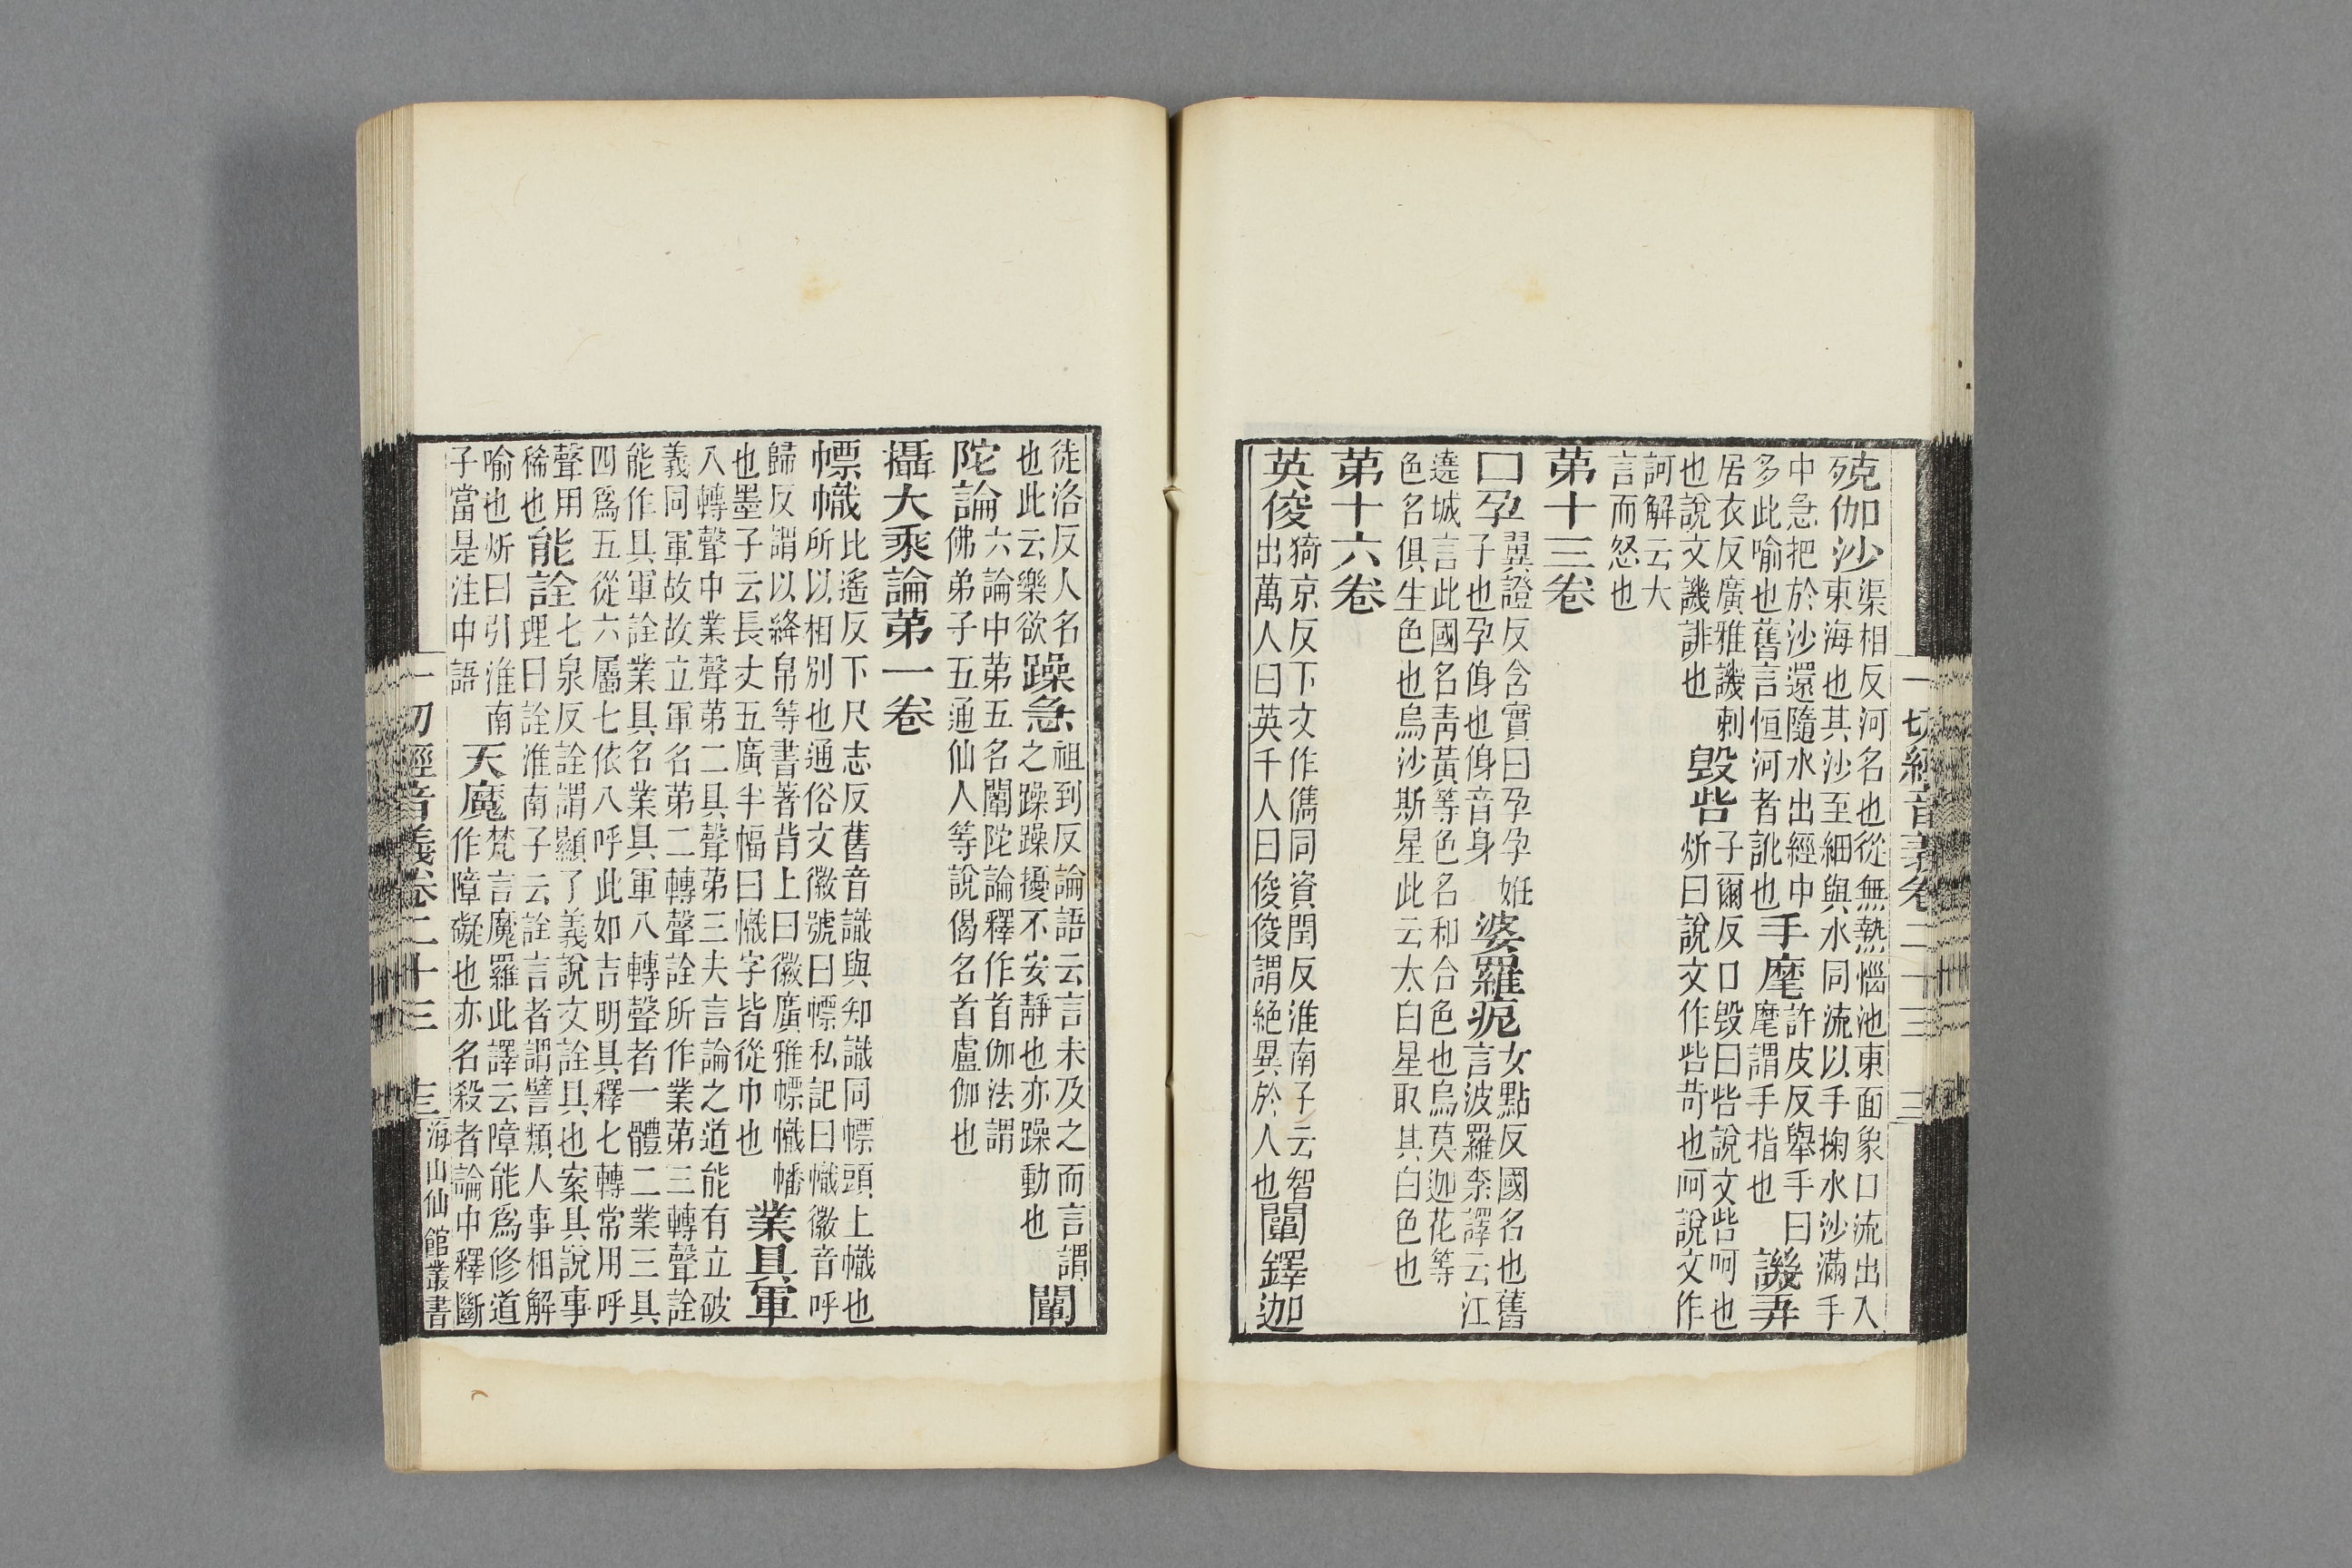 一切經音義卷二十三 三
殑伽沙
渠相反河名也從無熱惱池東面象口流出入
東海也其沙至細與水同流以手掬水沙滿手
中急把於沙還隨水出經中
多此喻也舊言恒河者訛也
手麾
許皮反舉手曰
麾謂手指也
譏弄
居衣反廣雅譏刺
也說文譏誹也
毀呰
子爾反口毀曰呰說文呰呵也
炘曰說文作呰苛也呵說文作
訶解云大
言而怒也
第十三卷
口孕
翼證反含實曰孕孕妊
子也孕㑗也㑗音身
婆羅痆
女點反國名也舊
言波羅柰譯云江
遶城言此國名青黃等色名和合色也烏莫迦花等
色名俱生色也烏沙斯星此云太白星取其白色也
第十六卷
英俊
猗京反下文作儁同資閏反淮南子云智
出萬人曰英千人曰俊俊謂絶異於人也
闡鐸迦
徒洛反人名
也此云樂欲
躁急
祖到反論語云言未及之而言謂
之躁躁擾不安靜也亦躁動也
闡
陀論
六論中第五名闡陀論釋作首伽法謂
佛弟子五通仙人等說偈名首盧伽也
攝大乘論第一卷
幖幟
比遙反下尺志反舊音識與知識同幖頭上幟也
所以相別也通俗文徽號曰幖私記曰幟徽音呼
歸反謂以絳帛等書著背上曰徽廣雅幖幟幡
也墨子云長丈五廣半幅曰幟字皆從巾也
業具軍
八轉聲中業聲第二具聲第三夫言論之道能有立破
義同軍故故立軍名第二轉聲詮所作業第三轉聲詮
能作具軍詮業具名業具軍八轉聲者一體二業三具
四爲五從六屬七依八呼此如吉明具釋七轉常用呼
聲用
稀也
能詮
七泉反詮謂顯了義說文詮具也案具說事
理曰詮淮南子云詮言者謂譬類人事相解
喻也炘曰引淮南
子當是注中語
天魔
梵言魔羅此譯云障能爲修道
作障礙也亦名殺者論中釋斷
一切經音義卷二十三 三 海山仙館叢書